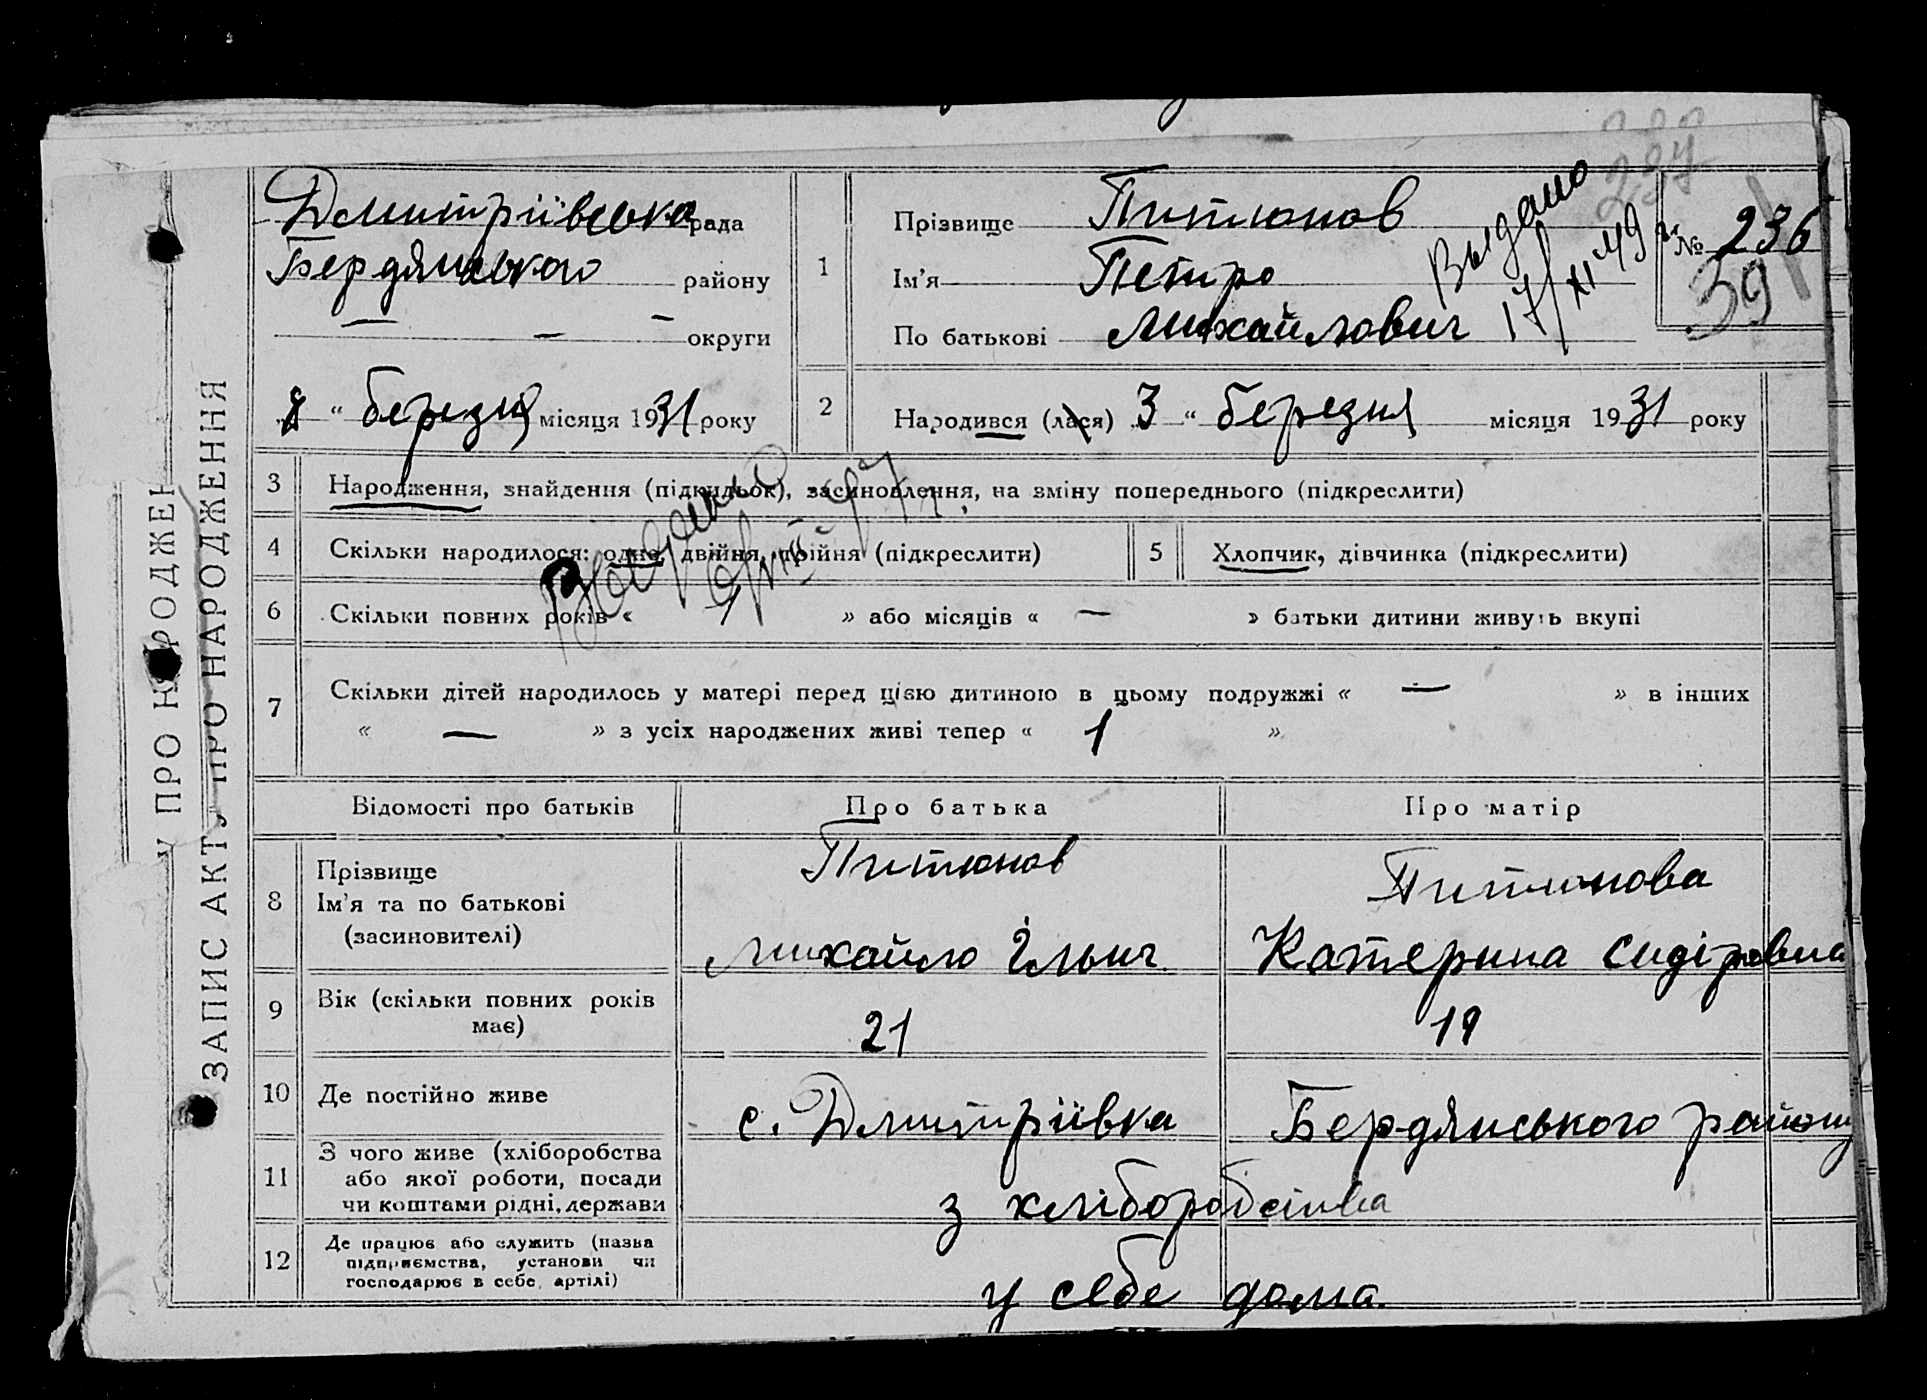 ЗАПИС АКТУ ПРО НАРОДЖЕННЯ
У ПРО НАРОДЖЕН
Дмитріївська рада
Бердянського району
— — — округи
8 " березня місяця 1931 року
1
Прізвище Питюнов
Ім'я Петро
По батькові Михайлович
Выдано
17/XI 49 г.
287
№ 236
39
2 Народився (лася) 3 " березня місяця 1931 року
3 Народження, знайдення (підкидьок), засиновлення, на зміну попереднього (підкреслити)
4 Скільки народилося: одне, двійня, трійня (підкреслити)
5 Хлопчик, дівчинка (підкреслити)
6 Скільки повних років « 1 » або місяців « — » батьки дитини живуть вкупі
7 Скільки дітей народилось у матері перед цією дитиною в цьому подружжі « — » в інших
« — » з усіх народжених живі тепер « 1 »
Відомості про батьків Про батька Про матір
8 Прізвище Питюнов Питюнова
Ім'я та по батькові
(засиновителі) Михайло Ільич Катерина
9 Вік (скільки повних років
має) 21 19
10 Де постійно живе с. Дмитріївка Бердянського району
11 З чого живе (хліборобства
або якої роботи, посади
чи коштами рідні, держави з хліборобства
12 Де працює або служить (назва
підприємства, установи чи
господарює в себе, артілі) у себе дома.